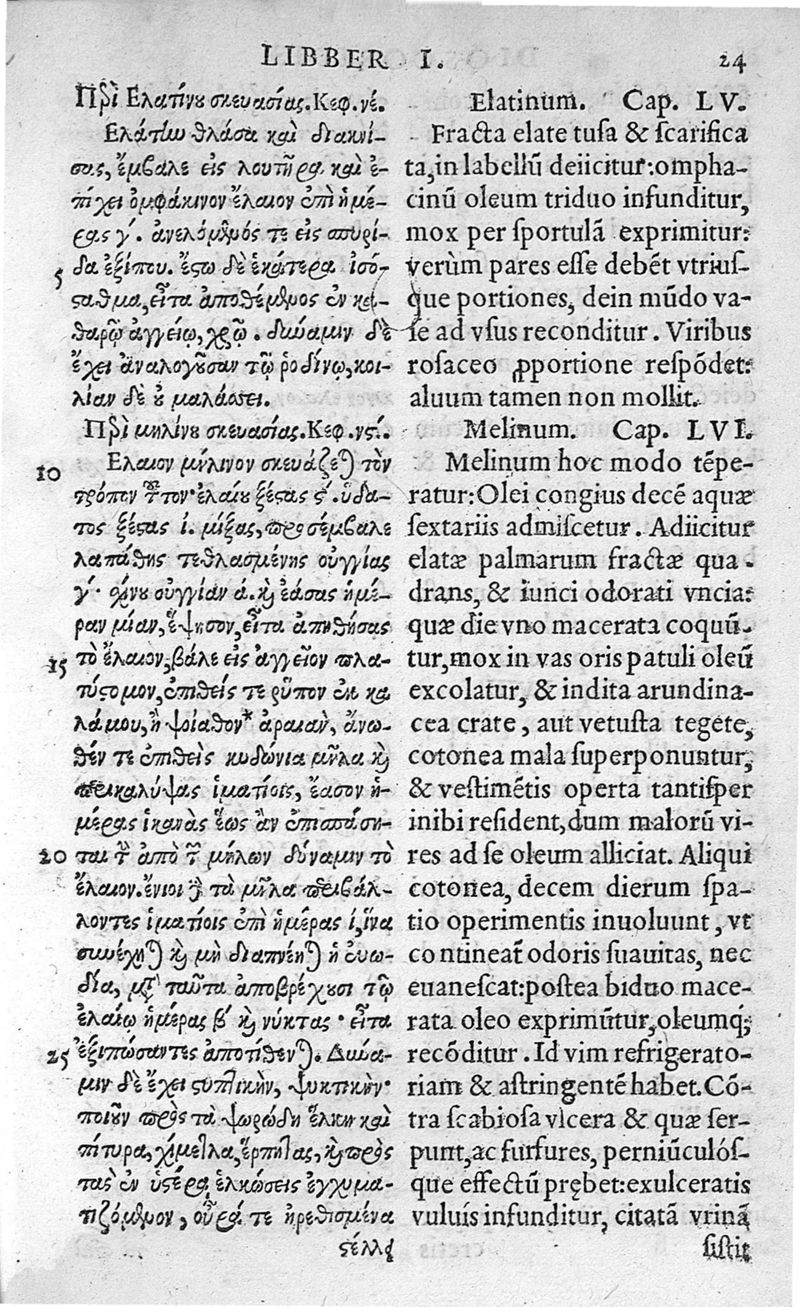 LIBBER I. 24
Περὶ Ελατίνου σκευασίας. Κεφ. νέ.
Ελάτίω θλάσα καὶ διακνί-
σας, ἔμβαλε εἰς λουτῆρα καὶ ἐ-
πίχει ὀμφάκινον ἔλαιον ἐπὶ ἡμέ-
ρας γ΄. ἀνελόμενός τε εἰς σπυρί-
5 δα ἐξίπου. ἔςω δὲ ἑκάτερα ἰσό-
ςαθμα, εἶτα ἀποθέμενος ἐν κα-
θαρῷ ἀγγείῳ, χρῶ. δύναμιν δὲ
ἔχει ἀναλογοῦσαν τῷ ῥοδίνῳ, κοι-
λίαν δὲ οὐ μαλάσσει.
Περὶ μηλίνου σκευασίας. Κεφ. νς΄.
10 Ελαιον μήλινον σκευάζεται τὸν
τρόπον τοῦτον· ἐλαίου ξέςας ς΄. ὕδα-
τος ξέςας ι. μίξας, προσέμβαλε
λαπάθης τεθλασμένης οὐγγίας
γ΄· σχίνου οὐγγίαν ά. καὶ ἐάσας ἡμέ-
ραν μίαν, ἕψησον, εἶτα ἀπηθήσας
15 τὸ ἔλαιον, βάλε εἰς ἀγγεῖον πλα-
τύςομον, ἐπιθείς τε ῥῦπον ἐκ κα
λάμου, ἢ ψοίαθον* ἀραιὰν, ἄνω-
θέν τε ἐπιθεὶς κυδώνια μῆλα καὶ
περικαλύψας ἱματίοις, ἔασον ἡ-
μέρας ἱκανὰς ἕως ἂν ἐπισπάση-
20 ται τὴν ἀπὸ τῶν μήλων δύναμιν τὸ
ἔλαιον. ἔνιοι δὲ τὰ μῆλα περιβάλ-
λοντες ἱματίοις ἐπὶ ἡμέρας ί, ἵνα
συνέχηται καὶ μὴ διαπνέηται ἡ εὐω-
δία, μετὰ ταῦτα ἀποβρέχουσι τῷ
ἐλαίῳ ἡμέρας β΄ καὶ νύκτας· εἶτα
25 ἐξιπώσαντες ἀποτίθενται. Δύνα-
μιν δὲ ἔχει ςυπτικὴν, ψυκτικὴν·
ποιοῦν πρὸς τὰ ψωρώδη ἕλκη καὶ
πίτυρα, χίμετλα, ἕρπητας, καὶ πρὸς
τὰς ἐν ὑςέρᾳ ἑλκώσεις ἐγχυμα-
τιζόμενον, οὖρά τε ἠρεθισμένα
ςέλλει
Elatinum. Cap. LV.
Fracta elate tusa & scarifica
ta, in labellũ deiicitur: ompha-
cinũ oleum triduo infunditur,
mox per sportulã exprimitur:
verùm pares esse debẽt vtrius-
que portiones, dein mũdo va-
se ad vsus reconditur. Viribus
rosaceo ꝓportione respõdet:
aluum tamen non mollit.
Melinum. Cap. LVI.
Melinum hoc modo tẽpe-
ratur: Olei congius decẽ aquæ
sextariis admiscetur. Adiicitur
elatæ palmarum fractæ qua-
drans, & iunci odorati vncia:
quæ die vno macerata coquũ-
tur, mox in vas oris patuli oleũ
excolatur, & indita arundina-
cea crate, aut vetusta tegete,
cotonea mala superponuntur,
& vestimẽtis operta tantisper
inibi resident, dum malorũ vi-
res ad se oleum alliciat. Aliqui
cotonea, decem dierum spa-
tio operimentis inuoluunt, vt
contineat̃ odoris suauitas, nec
euanescat: postea biduo mace-
rata oleo exprimũtur, oleumq;
recõditur. Id vim refrigerato-
riam & astringentẽ habet. Cõ-
tra scabiosa vlcera & quæ ser-
punt, ac furfures, perniũculós-
que effectũ prębet: exulceratis
vuluis infunditur, citatã vrinã
sistit